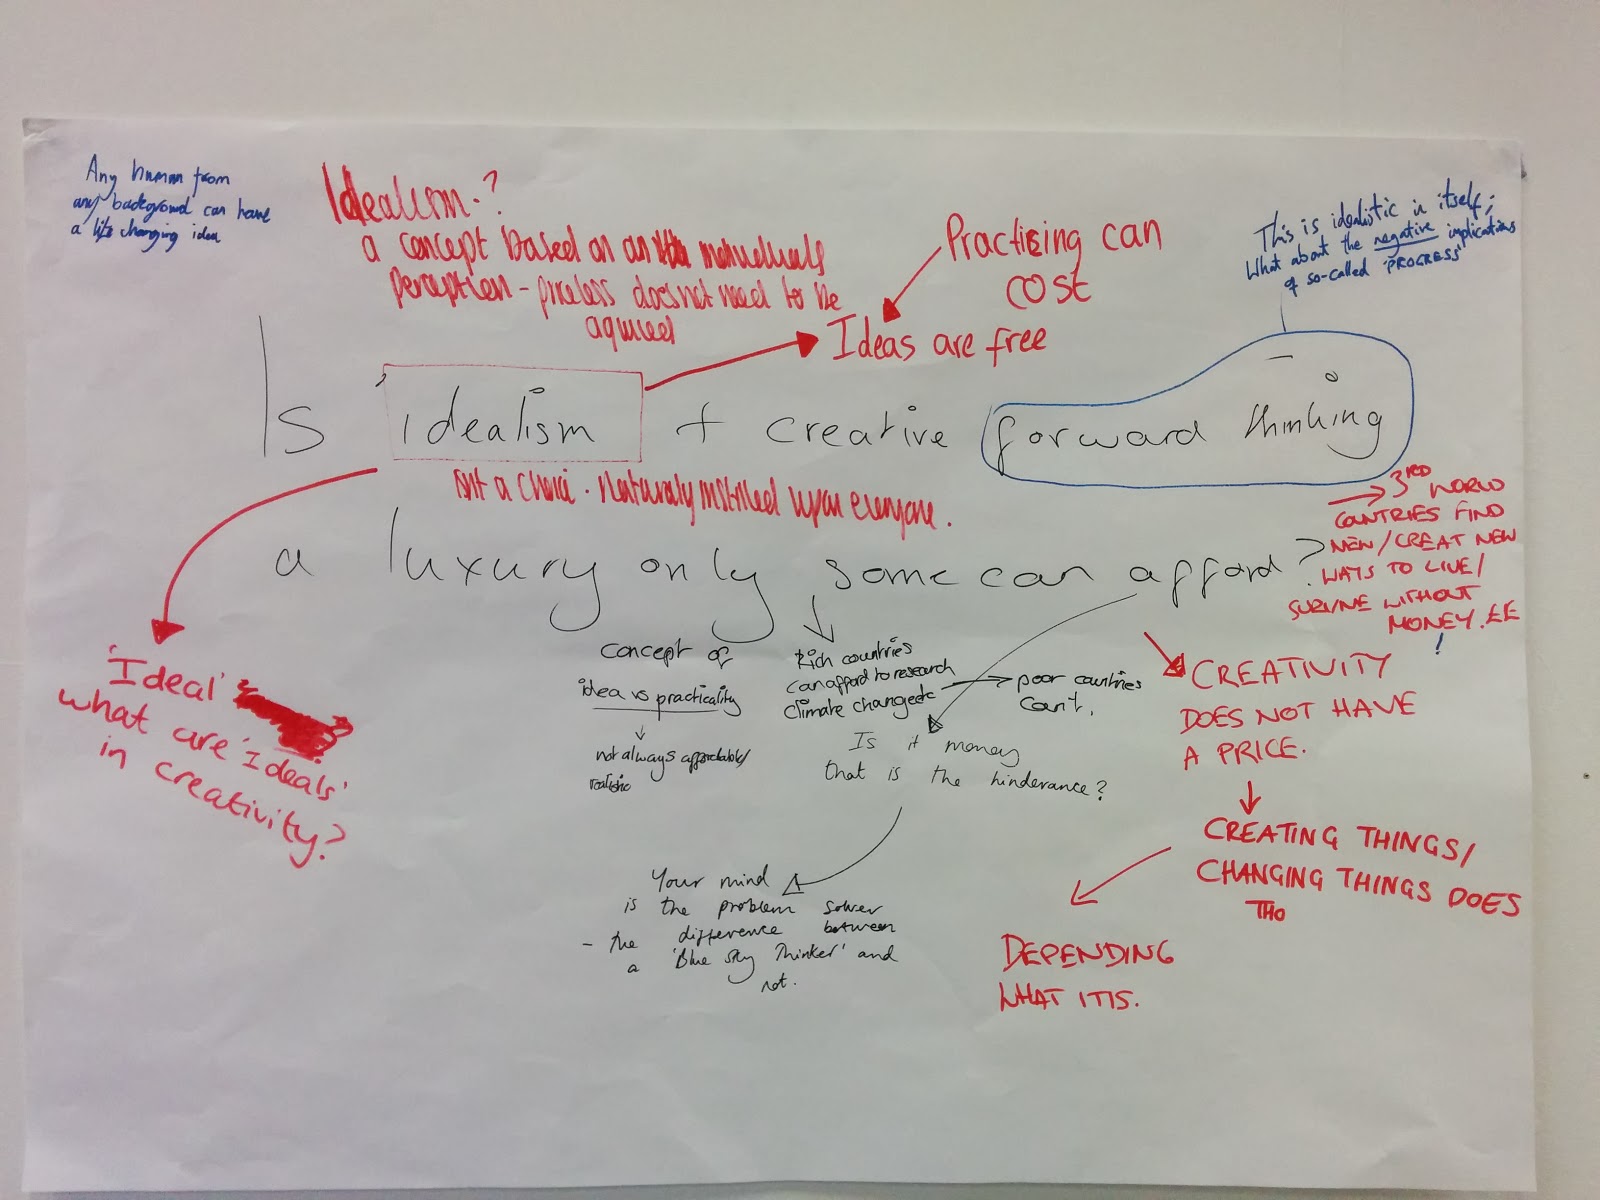 Any human from
any background can have
a life changing idea
Idealism - ?
a concept based on an individuals
perception - priceless does not need to be
aquired
Practicing can
cost
Ideas are free
This is idealistic in itself;
What about the negative implications
of so-called 'PROGRESS'
Is 'idealism + creative forward thinking
isnt a choice. Naturaly instilled upon everyone.
a luxury only some can afford?
3RD WORLD
COUNTRIES FIND
NEW/CREAT NEW
WAYS TO LIVE/
SURVIVE WITHOUT
MONEY. ££
!
'Ideal'
what are 'Ideals'
in creativity?
concept of
idea vs practicality
not always affordable/
realistic
Rich countries
can afford to research
climate change etc
poor countries
can't.
Is it money
that is the hinderance?
Your mind
is the problem solver
- the difference between
a 'Blue Sky Thinker' and
not.
CREATIVITY
DOES NOT HAVE
A PRICE.
CREATING THINGS/
CHANGING THINGS DOES
THO
DEPENDING
WHAT IT IS.